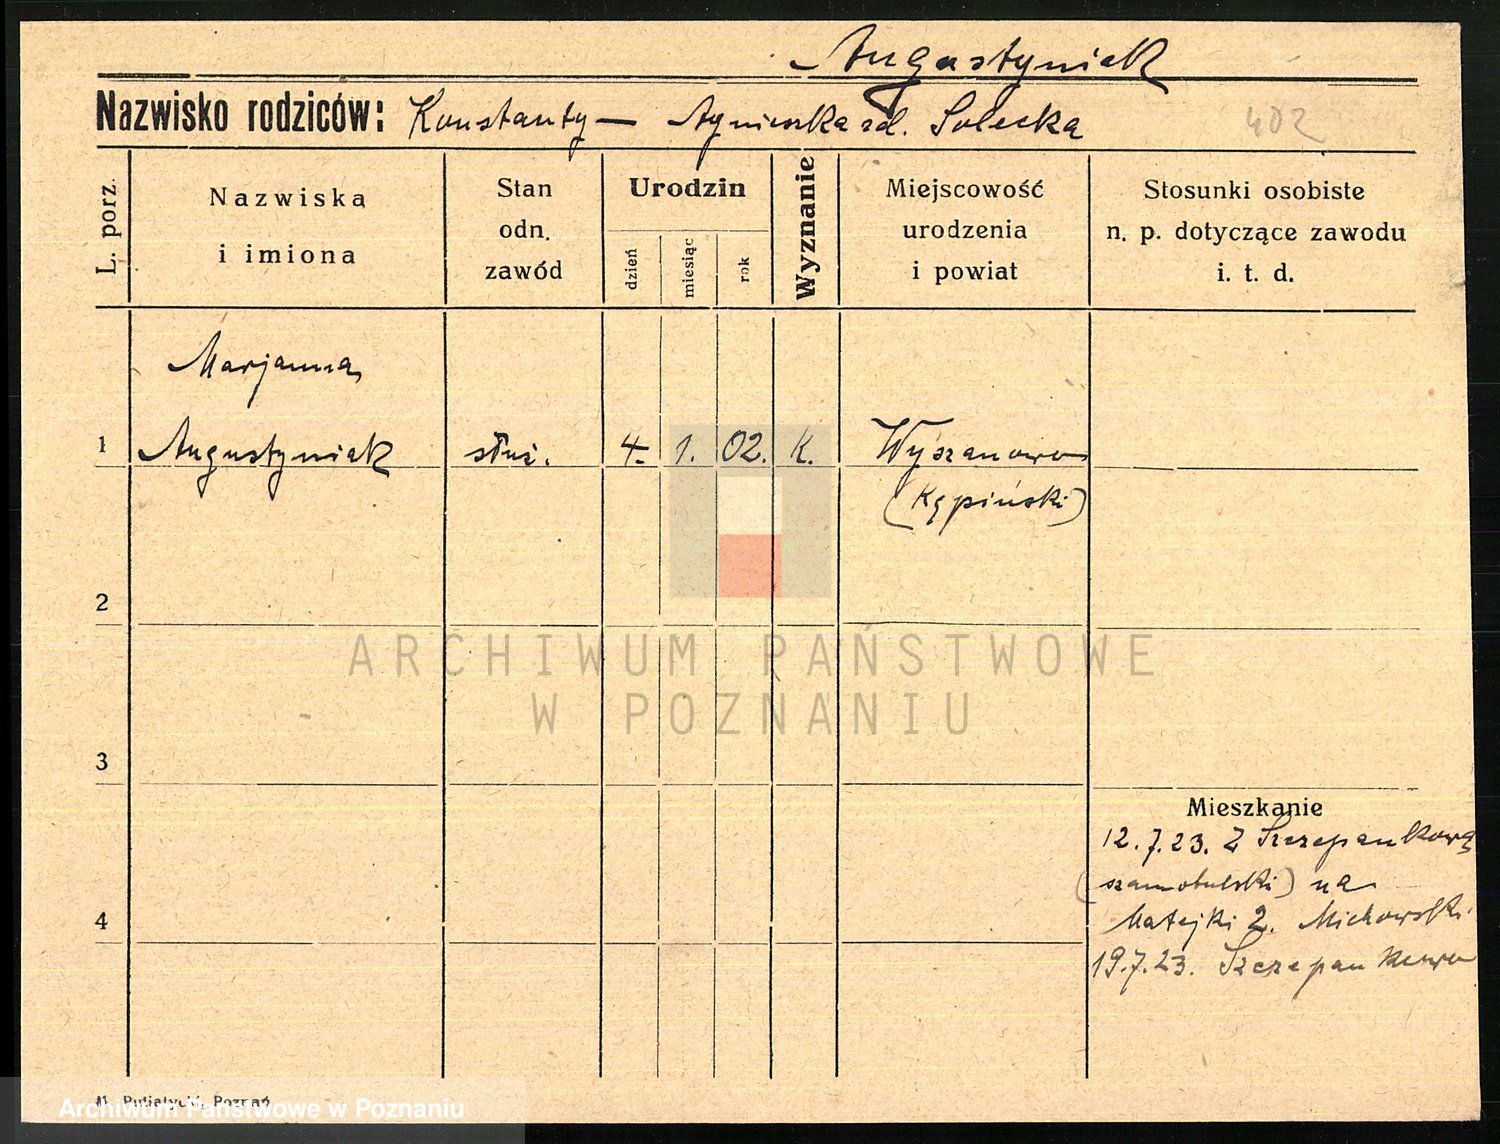 Augustyniak
Nazwisko rodziców: Konstanty — Agnieszka zd. Solecka
402
L. porz.
Nazwiska
i imiona
Stan
odn.
zawód
Urodzin
dzień
miesiąc
rok
Wyznanie
Miejscowość
urodzenia
i powiat
Stosunki osobiste
n. p. dotyczące zawodu
i. t. d.
Marjanna
1 Augustyniak służ. 4. 1. 02. k. Wyszanowo
(Kępiński)
2
ARCHIWUM PAŃSTWOWE
W POZNANIU
3
Mieszkanie
12.7.23. Z Szczepankową
(szamotulski) na
4
Matejki 2. Michowski
19.7.23. Szczepankowo
M. Putiatycki, Poznań
Archiwum Państwowe w Poznaniu